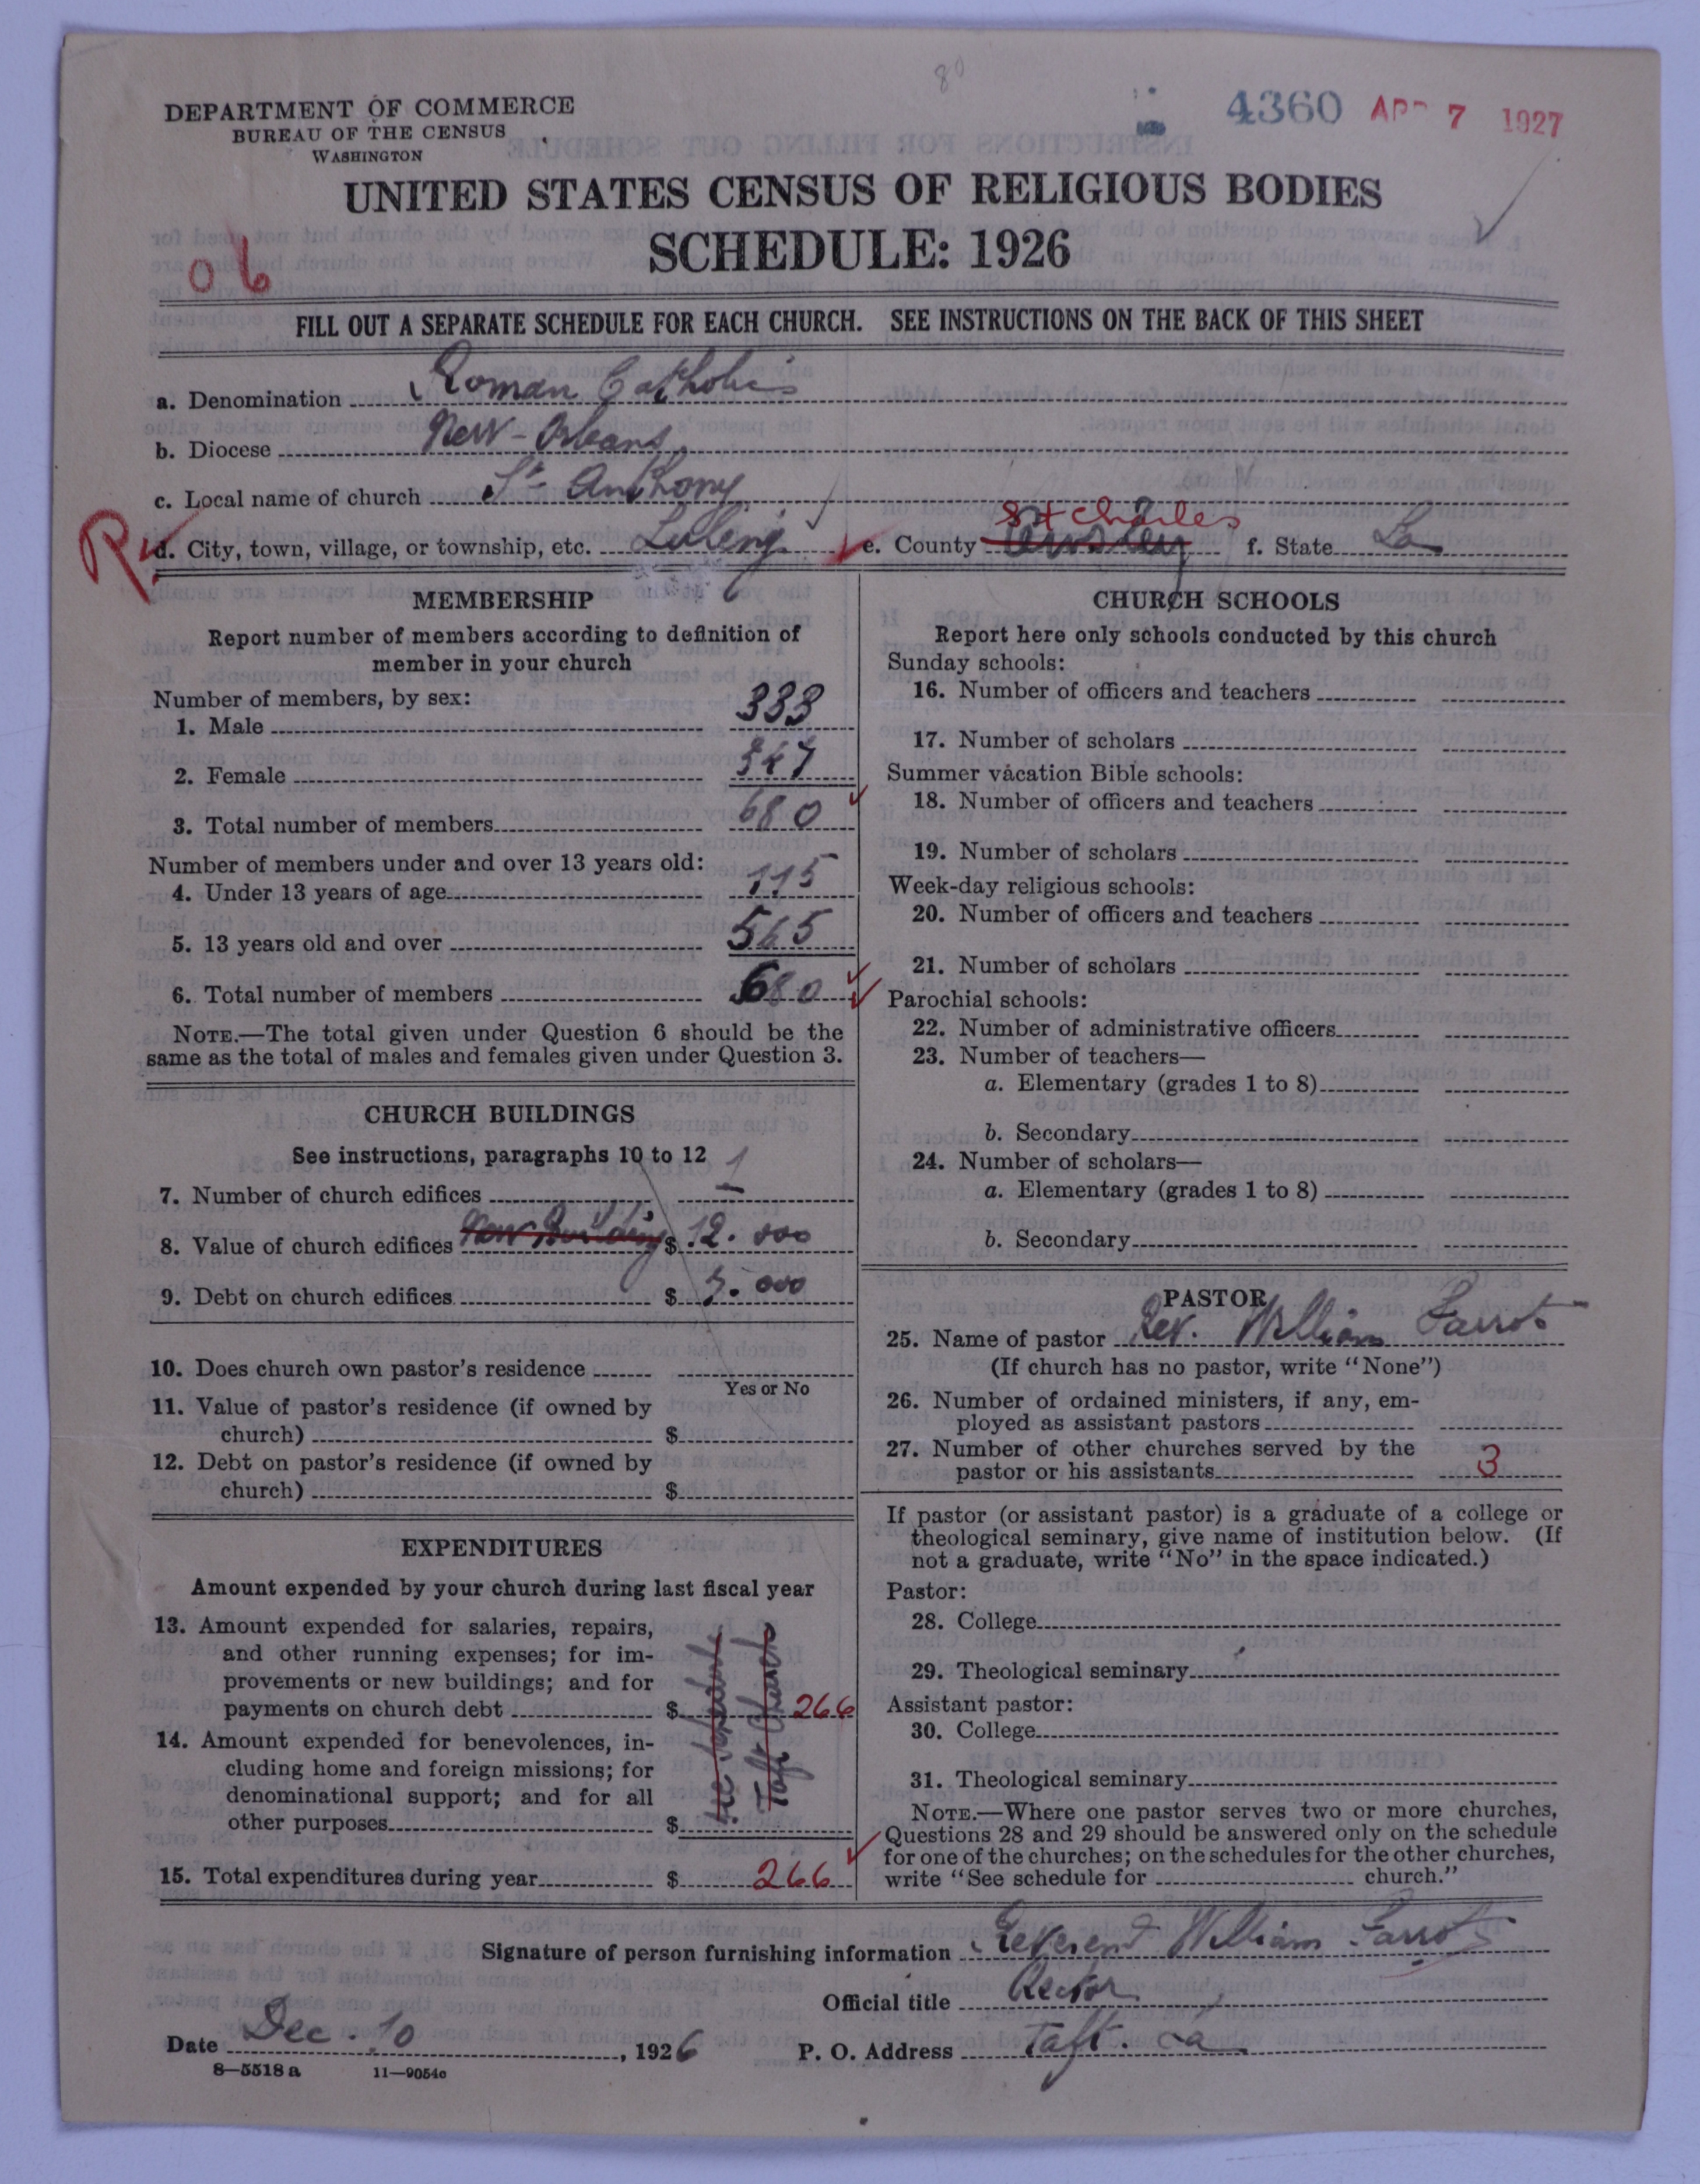 80
4360 APR 7 1927
DEPARTMENT OF COMMERCE
BUREAU OF THE CENSUS
WASHINGTON
UNITED STATES CENSUS OF RELIGIOUS BODIES
SCHEDULE: 1926
06
FILL OUT A SEPARATE SCHEDULE FOR EACH CHURCH. SEE INSTRUCTIONS ON THE BACK OF THIS SHEET
a. Denomination Roman Catholic
b. Diocese New-Orleans
c. Local name of church St Anthony
R d. City, town, village, or township, etc. Luling e. County St Charles f. State La
MEMBERSHIP
Report number of members according to definition of
member in your church
Number of members, by sex:
1. Male 333
2. Female 347
3. Total number of members 680
Number of members under and over 13 years old:
4. Under 13 years of age 115
5. 13 years old and over 565
6. Total number of members 680
NOTE.—The total given under Question 6 should be the
same as the total of males and females given under Question 3.
CHURCH BUILDINGS
See instructions, paragraphs 10 to 12
7. Number of church edifices 1
8. Value of church edifices New Building $ 12.000
9. Debt on church edifices $ 5.000
10. Does church own pastor's residence
Yes or No
11. Value of pastor's residence (if owned by
church) $
12. Debt on pastor's residence (if owned by
church) $
EXPENDITURES
Amount expended by your church during last fiscal year
13. Amount expended for salaries, repairs,
and other running expenses; for im-
provements or new buildings; and for
payments on church debt $ 266
14. Amount expended for benevolences, in-
cluding home and foreign missions; for
denominational support; and for all
other purposes $
See schedule
Taft Church
15. Total expenditures during year $ 266
CHURCH SCHOOLS
Report here only schools conducted by this church
Sunday schools:
16. Number of officers and teachers
17. Number of scholars
Summer vacation Bible schools:
18. Number of officers and teachers
19. Number of scholars
Week-day religious schools:
20. Number of officers and teachers
21. Number of scholars
Parochial schools:
22. Number of administrative officers
23. Number of teachers—
a. Elementary (grades 1 to 8)
b. Secondary
24. Number of scholars—
a. Elementary (grades 1 to 8)
b. Secondary
PASTOR
25. Name of pastor Rev. William Jarrot
(If church has no pastor, write "None")
26. Number of ordained ministers, if any, em-
ployed as assistant pastors
27. Number of other churches served by the
pastor or his assistants 3
If pastor (or assistant pastor) is a graduate of a college or
theological seminary, give name of institution below. (If
not a graduate, write "No" in the space indicated.)
Pastor:
28. College
29. Theological seminary
Assistant pastor:
30. College
31. Theological seminary
NOTE.—Where one pastor serves two or more churches,
Questions 28 and 29 should be answered only on the schedule
for one of the churches; on the schedules for the other churches,
write "See schedule for church."
Signature of person furnishing information Reverend William Jarrot
Official title Rector
Date Dec. 10, 1926 P. O. Address Taft. La
8—5518 a 11—9054o